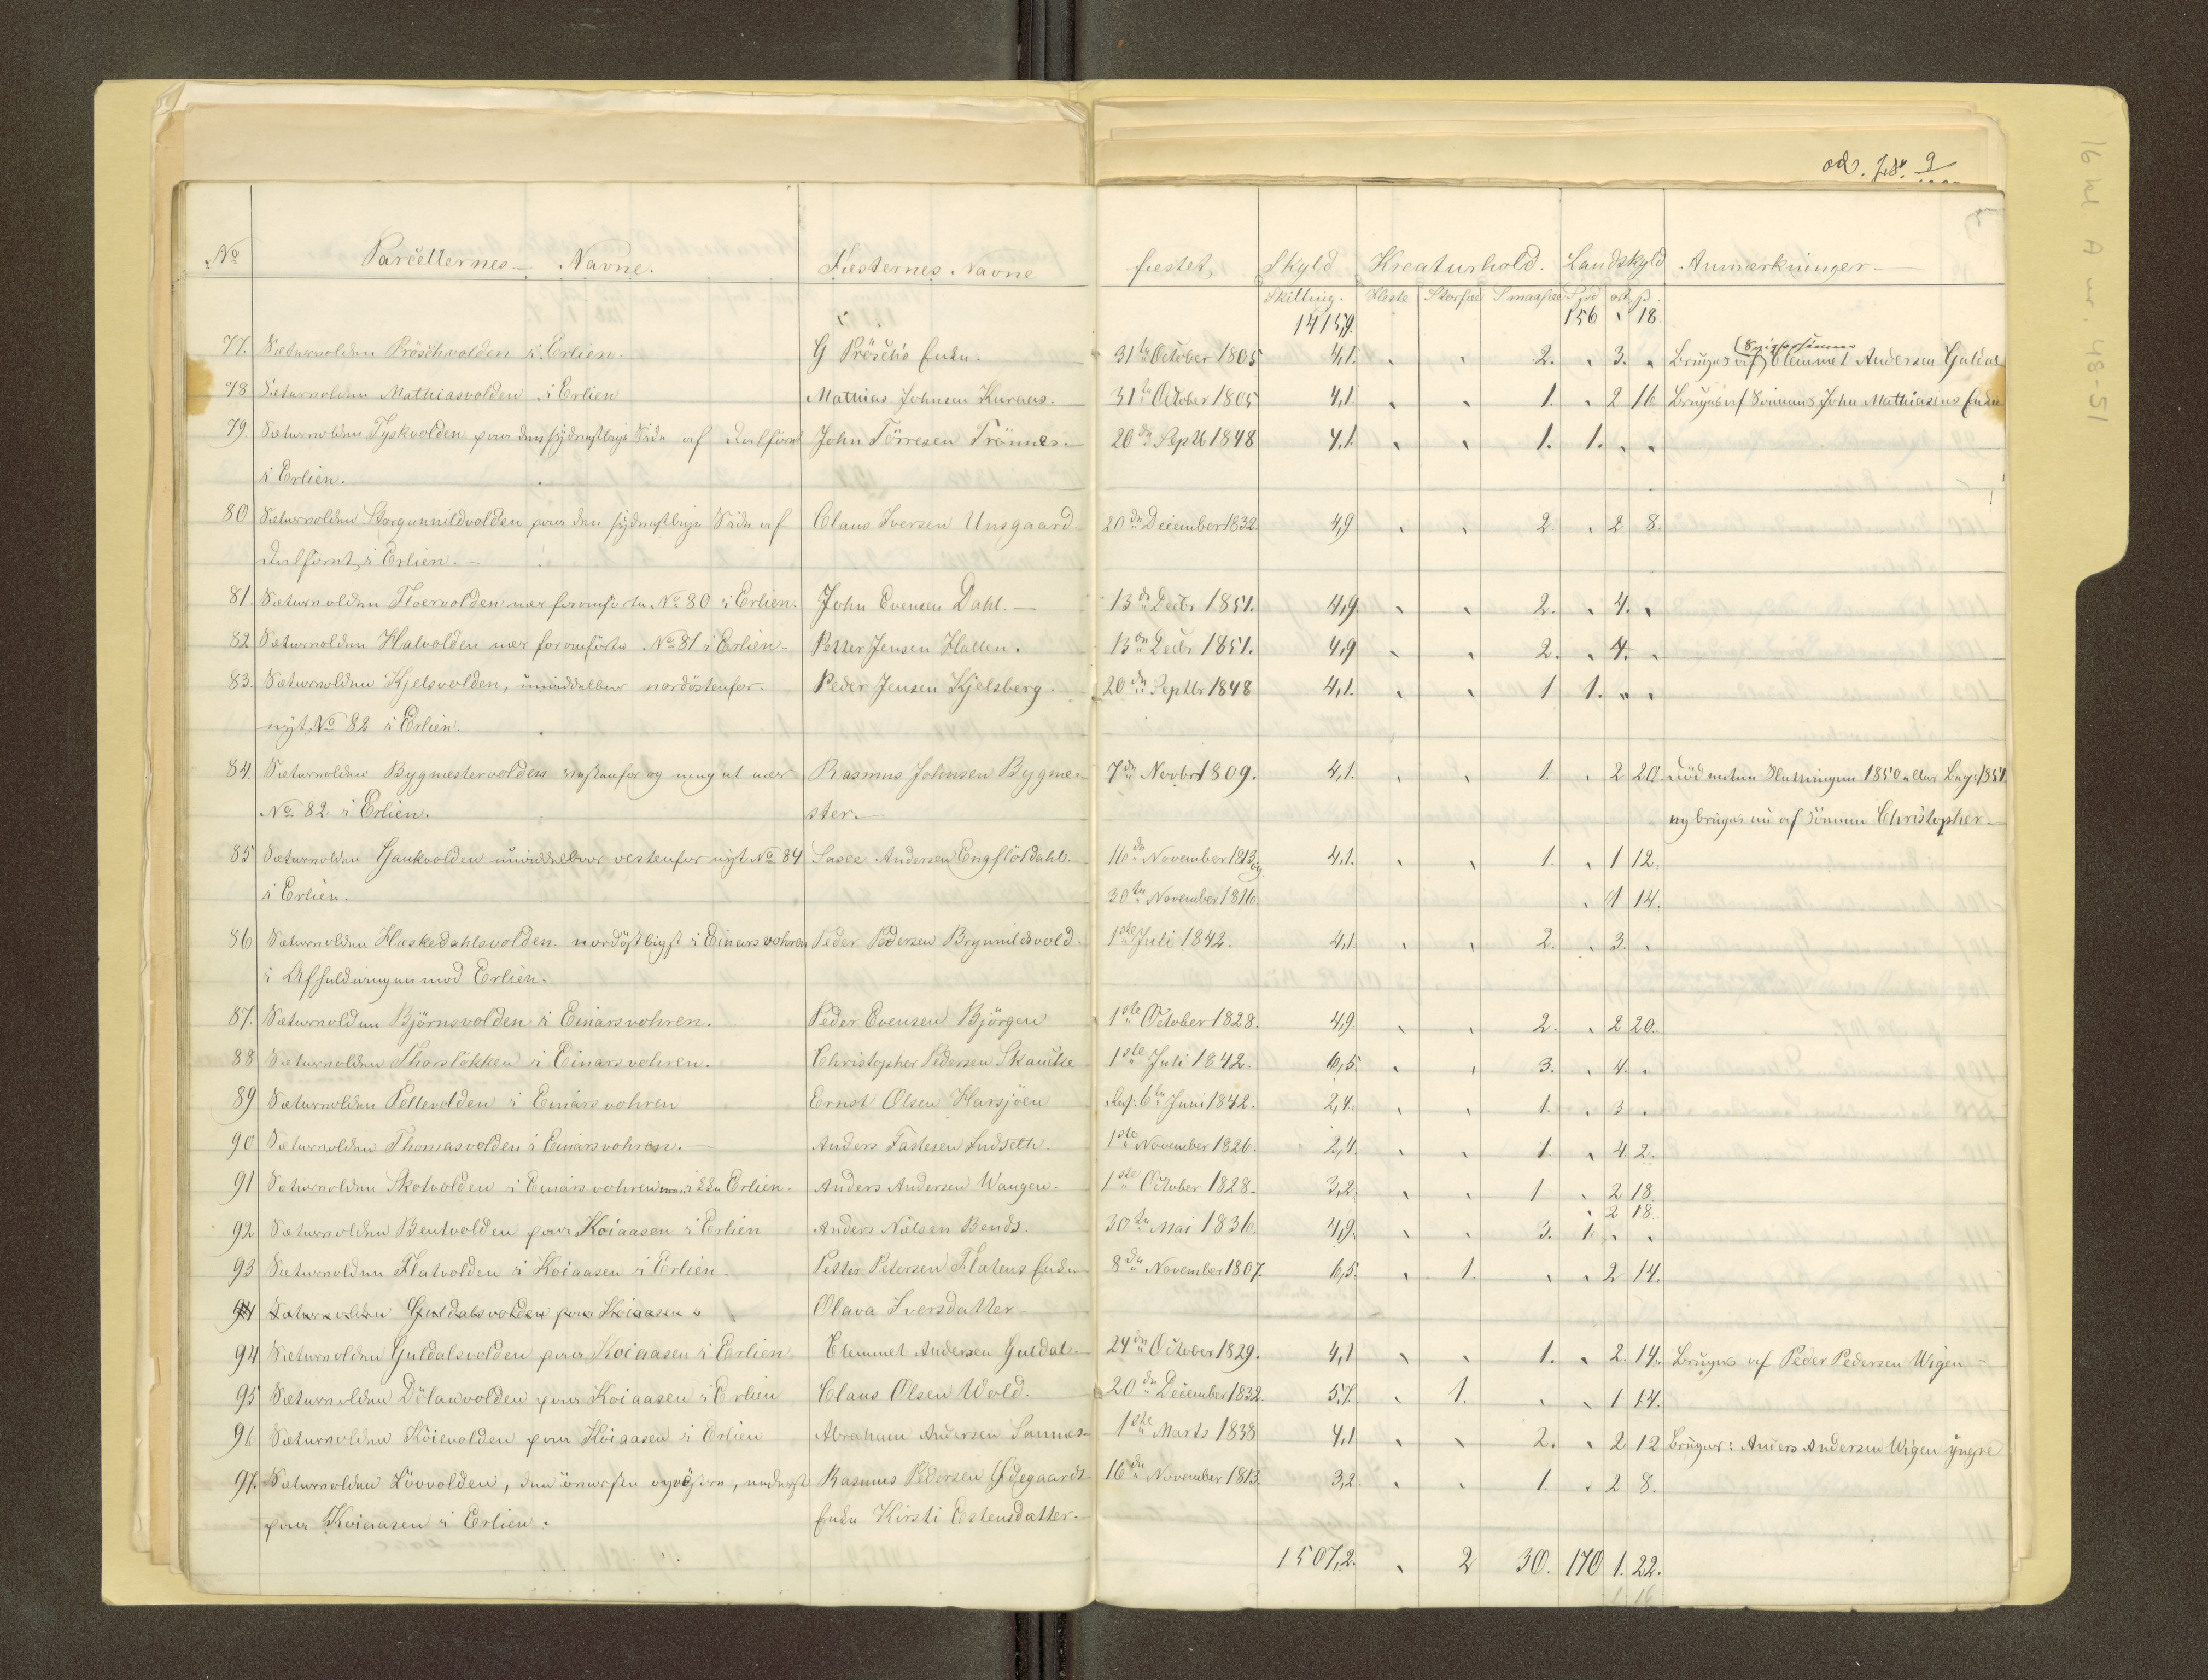 16 kl A nr. 48-51
9
5
No Parcellernes Navne. Fæsternes Navne fæstet, Skyld Kreaturhold. Landskyld Anmærkninger
Skilling. Heste Storfæ Smaafæ Spd ort ß.
1415,9. 156 " 18.
77. Sæturvolden Pröschvolden i Erlien. G Prösch's Enke. 31te October 1805 4,1. " " 2. " 3. " Bruges af Svigersønnen Clemmet Andersen Guldal
78 Sæturvolden Mathiasvolden i Erlien Mathias Johnsen Kuraas. 31te October 1805 4,1. " " 1. " 2 16 Bruges af Sönnens John Mathiasens Enke
79. Sæturvolden Tyskvolden paa den sydvestlige Side af Dalföret John Törresen Trönnes. 20de Septb 1848 4.1. " " 1. 1. " "
i Erlien.
80 Sæturvolden Storgunnildvolden paa den sydvestlige Side af Claus Iversen Unsgaard 20de December 1832. 4,9 " " 2. " 2 8.
Dalföret i Erlien.
81. Sæturvolden Floervolden nær foranførte No 80 i Erlien. John Evensen Dahl. 13de Decbr 1851. 4,9 " " 2. " 4. "
82 Sæturvolden Halvolden nær foranførte No 81 i Erlien Petter Jensen Hallen. 13de Decbr 1851. 4,9 " " 2. " 4. "
83. Sæturvolden Kjelsvolden, umiddelbar nordöstenfor Peder Jensen Kjelsberg. 20de Septbr 1848 4,1. " " 1 1. " "
nyt No 82 i Erlien.
84. Sæturvolden Bygmestervolden vestenfor og meget nær Rasmus Johnsen Bygme- 7de Novbr 1809. 4,1. " " 1. " 2 20. död enten Slutningen 1850 eller Beg: 1851
No 82 i Erlien. ster. og bruges nu af Sönnen Christopher
85 Sæturvolden Gaukvolden umiddelbar vestenfor nyt No 84 Lasse Andersen Engflötdahl. 16de November 1813 og 4,1. " " 1. " 1 12.
i Erlien. 30te November 1816 " 1 14.
86 Sæturvolden Hæskedahlsvolden nordöstligst i Einarsvohren Peder Pedersen Brynnildsvold 1ste Juli 1842. 4,1 " " 2. " 3. "
i Affuldningen mod Erlien.
87. Sæturvolden Björnsvolden i Einarsvohren. Peder Evensen Björgen 1ste October 1828. 4,9 " " 2. " 2 20.
88 Sæturvolden Thorslökken i Einarsvohren. Christopher Pedersen Skancke 1ste Juli 1842. 6,5. " " 3. " 4. "
89 Sæturvolden Pellevolden i Einarsvohren Ernst Olsen Harsjöen Resp. 6te Juni 1842. 2,4. " " 1. " 3 "
90 Sæturvolden Thomasvolden i Einarsvohren. Anders Fastesen Indseth. 1ste November 1826. 2,4. " " 1 " 4. 2.
91 Sæturvolden Skotvolden i Einarsvohren Erlien. Anders Andersen Wangen. 1ste October 1828. 3,2. " " 1 " 2 18.
" 2 18.
92 Sæturvolden Bentvolden paa Koiaasen i Erlien Anders Nielsen Bends. 30te Mai 1836. 4,9. " " 3. 1. " "
93 Sæturvolden Flatvolden i Koiaasen i Erlien. Petter Petersen Flatens Enke 8de November 1807. 6,5. " 1. " " 2 14.
94 Sæturvolden Guldalsvolden paa Koiaasen i Olava Iversdatter
94 Sæturvolden Guldalsvolden paa Koiaasen i Erlien Clemmet Andersen Guldal 24de October 1829. 4,1 " " 1. " 2. 14. Bruges af Peder Pedersen Wigen
95 Sæturvolden Dölanvolden paa Koiaasen i Erlien Claus Olsen Wold. 20de December 1832. 5,7. " 1. " " 1 14.
96 Sæturvolden Köievolden paa Koiaasen i Erlien Abraham Andersen Sannæs 1ste Marts 1838 4,1 " " 2. " 2 12 Bruges: Anders Andersen Wigen yngre
97. Sæturvolden Lövvolden, den överste, nederst Rasmus Pedersen Ödegaards 16de November 1813. 3,2. " " 1. " 2 8.
paa Koiaasen i Erlien. Enke Kirsti Estensdatter.
1507,2. " 2 30. 170 1. 22.
1 16